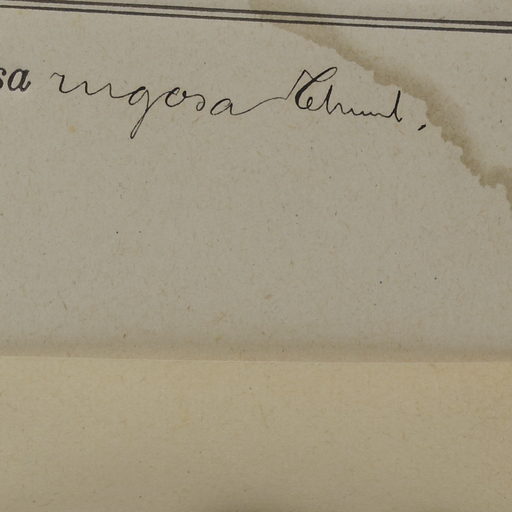 sa rugosa Thunb.